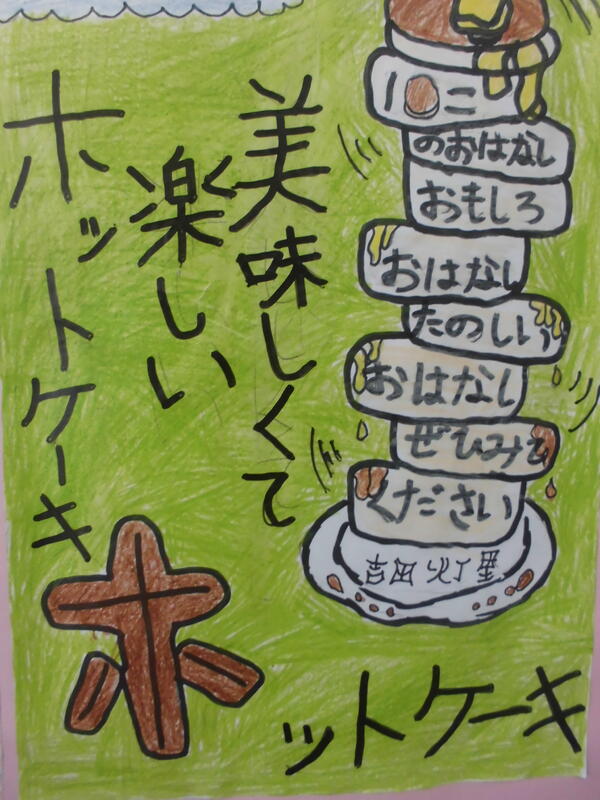 美味しくて
楽しい
ホットケーキ
10こ
のおはなし
おもしろ
おはなし
たのしい
おはなし
ぜひみて
ください
吉田 灯里
ホットケーキ